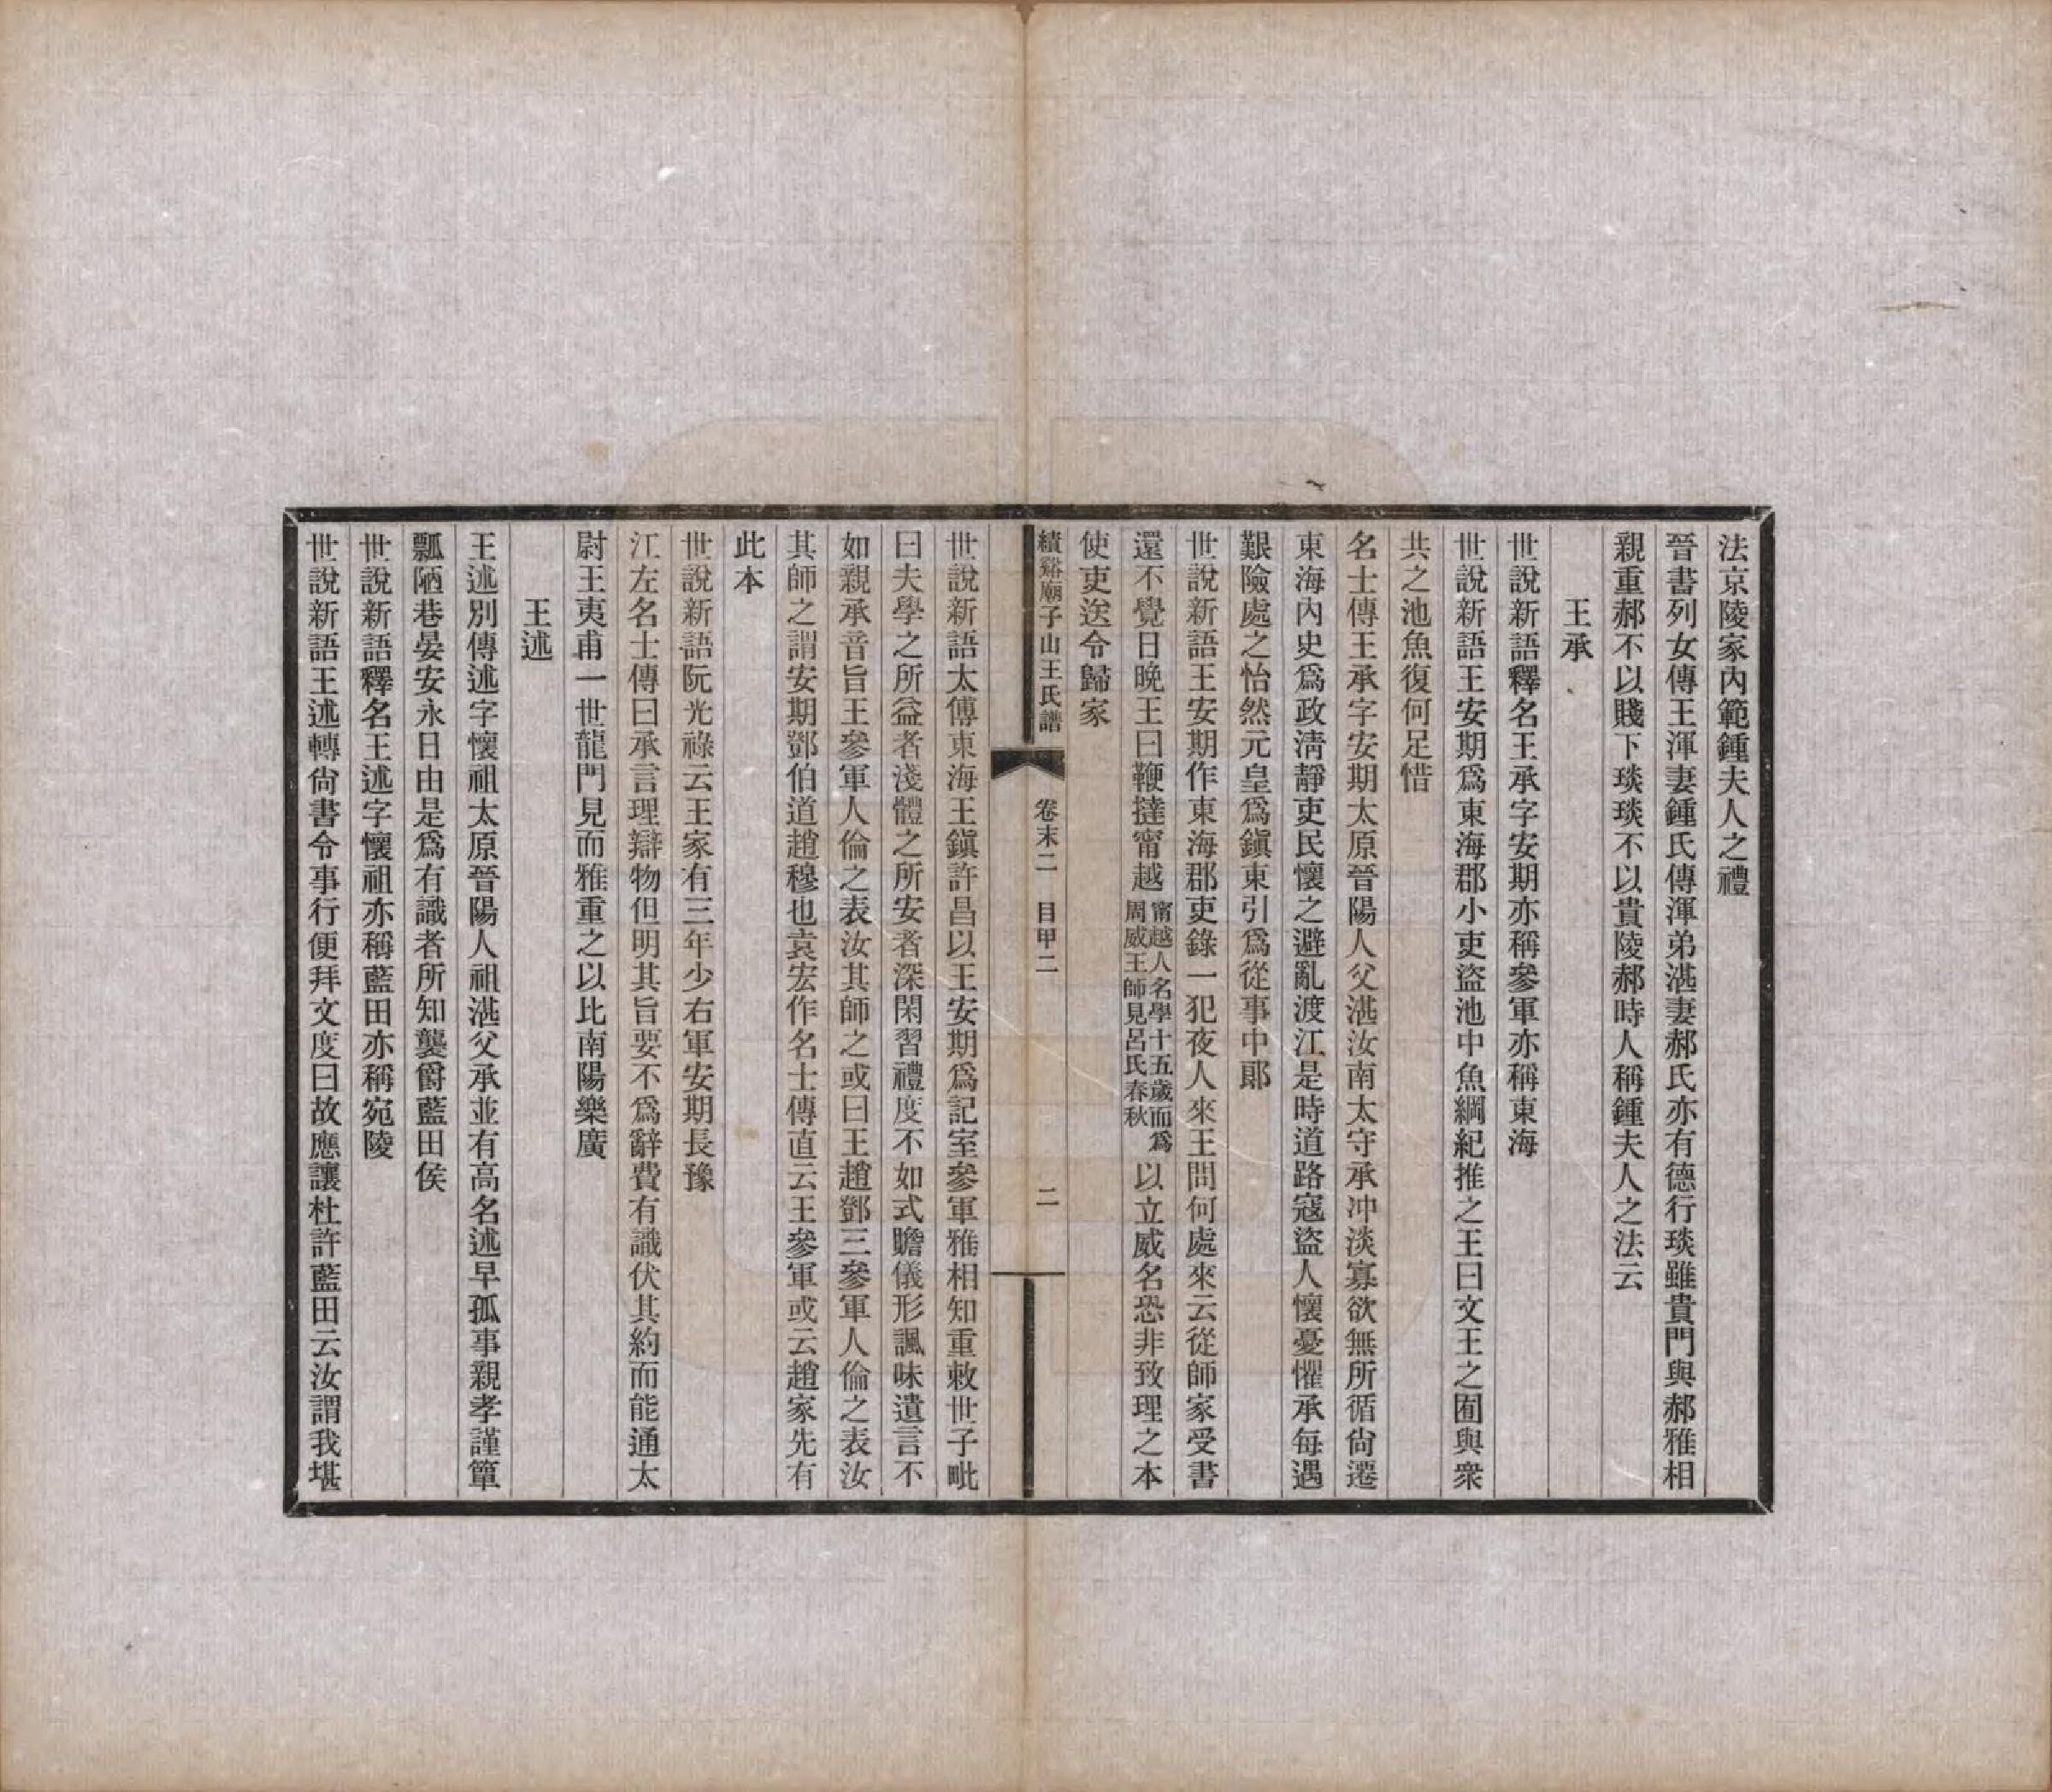 法京陵家內範鍾夫人之禮
晉書列女傳王渾妻鍾氏傳渾弟湛妻郝氏亦有德行琰雖貴門與郝雅相
親重郝不以賤下琰琰不以貴陵郝時人稱鍾夫人之法云
王承
世說新語釋名王承字安期亦稱參軍亦稱東海
世說新語王安期爲東海郡小吏盜池中魚綱紀推之王曰文王之囿與衆
共之池魚復何足惜
名士傳王承字安期太原晉陽人父湛汝南太守承冲淡寡欲無所循尙遷
東海內史爲政淸靜吏民懷之避亂渡江是時道路寇盜人懷憂懼承每遇
艱險處之怡然元皇爲鎭東引爲從事中郞
世說新語王安期作東海郡吏錄一犯夜人來王問何處來云從師家受書
還不覺日晚王曰鞭撻甯越甯越人名學十五歲而爲周威王師見呂氏春秋以立威名恐非致理之本
使吏送令歸家
績谿廟子山王氏譜 卷末二 目甲二 二
世說新語太傅東海王鎭許昌以王安期爲記室參軍雅相知重敕世子毗
曰夫學之所益者淺體之所安者深閑習禮度不如式瞻儀形諷味遺言不
如親承音旨王參軍人倫之表汝其師之或曰王趙鄧三參軍人倫之表汝
其師之謂安期鄧伯道趙穆也袁宏作名士傳直云王參軍或云趙家先有
此本
世說新語阮光祿云王家有三年少右軍安期長豫
江左名士傳曰承言理辯物但明其旨要不爲辭費有識伏其約而能通太
尉王夷甫一世龍門見而雅重之以比南陽樂廣
王述
王述別傳述字懷祖太原晉陽人祖湛父承並有高名述早孤事親孝謹簞
瓢陋巷晏安永日由是爲有識者所知襲爵藍田侯
世說新語釋名王述字懷祖亦稱藍田亦稱宛陵
世說新語王述轉尙書令事行便拜文度曰故應讓杜許藍田云汝謂我堪